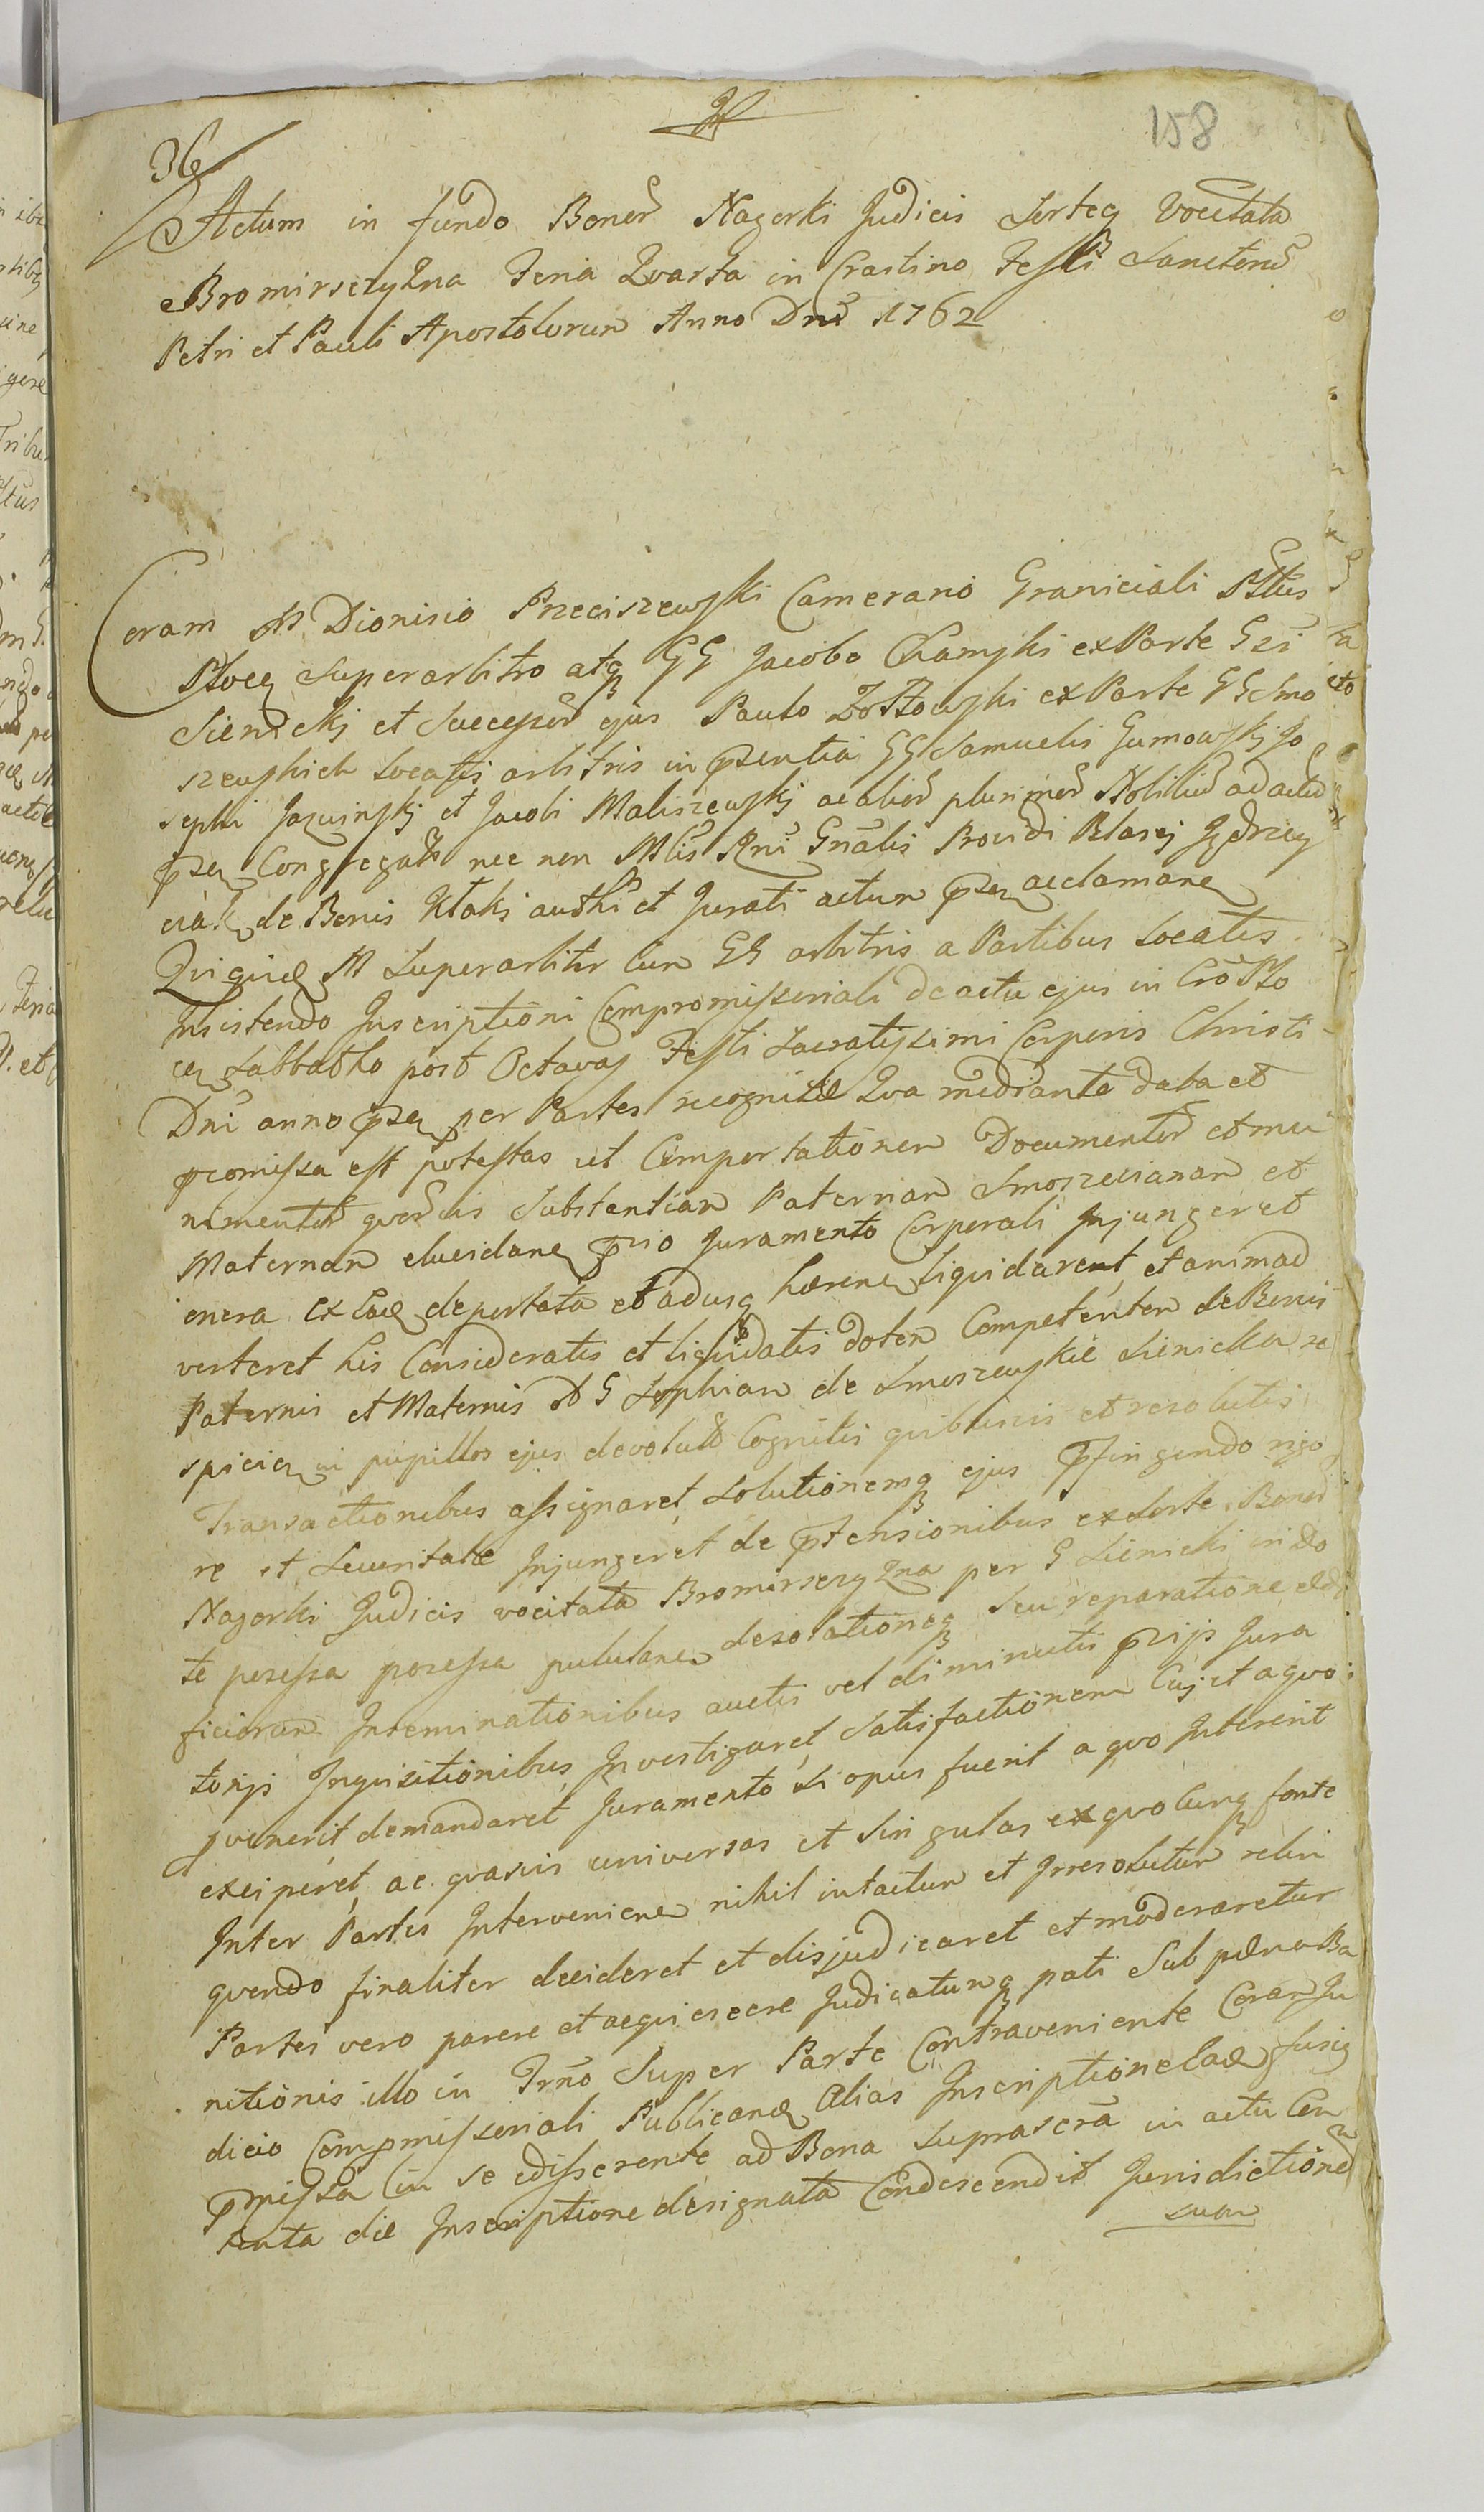 158
36
Actum in fundo Bonor Nagorki Judicis Sorteq vocitata
Bromirsczyzna Feria Quarta in Crastino Festi Sanctorũ
Petri et Pauli Apostolorum Anno Dni 1762
Coram M Dionisio Przeciszewski Camerario Graniciali Pltus
Ploceñ Superarbitro atq GG Jacobo Chamski ex Parte Gsi
Sienicki et Successor ejus Paulo Zołtowski ex Parte GG Smo
szewskich locatis arbitris in pñsentia GG Samuelis Gumowskj Jo
sephi Jazwinskj et Jacobi Maliszewskj ac alior plurimor Nobiliũ ad actũ
pñsen Congregatis nec non Mlis Rni Gnalis Providi Blasij Jędrzey
ciak de Bonis Kłaki authci et Jurati actum pñsen acclamaneñ
Qui quid M Superarbiter cum GG arbitris a Partibus locatis
Insistendo Inscriptioni Compromissoriali de actu ejus in Cro Plo
ceñ Sabbatho post Octavas Festi Sacratissimi Corporis Christi
Dni anno pñsen per Partes recognitæ Qua mediante data et
promissa est potestas ut Comportationem Documentor et mu
nimentor quorvis Substantiam Paternam Smoszevianam et
Maternam elucidaneñ prio Juramento Corporali Injungeret
onera ex eaq deportata et adusq hæreneñ liquidarent, et animad
verteret his Consideratis et liquidatis dotem Competentem de Bonis
Paternis et Maternis M G Sophiam de Smoszewskie Sienicka re
spicieñ in pupillos ejus devolutã Cognitis quibusvis et resolutis
Transactionibus assignaret, solutionemq ejus pfingendo rigo
re et securitate Injungeret de ptensionibus ex Sorte Bonor
Nagorki Judicis vocitata Bromirsczyzna per G Sienicki in do
te posessa posessa pululaneñ desolationeq seu reparatione ædi
ficiorum Inseminationibus auctis vel diminutis prijs Jura
torijs Inquisitionibus Investigaret, Satisfactionem Cuj et a quo
pvenerit, demandaret, Juramento si opus fuerit a quo Intererit
exciperet, ac quasvis universas et singulas ex quocunq fonte
Inter Partes Intervenieneñ nihil intactum et Irresolutum relin
quendo finaliter decideret et disjudicaret et moderaretur
Partes vero parere et acquiescere Judicatumq pati sub pœna Ba
nitionis illo in Trno Super Parte Contraveniente Coram Ju
dicio Compmissoriali Publicanda Alias Inscriptione Eadẽ fusig
pmissa in se edisserente ad Bona Suprascra in actu Con
tenta die Inscriptione designata Condescendit Jurisdictionẽ
suam